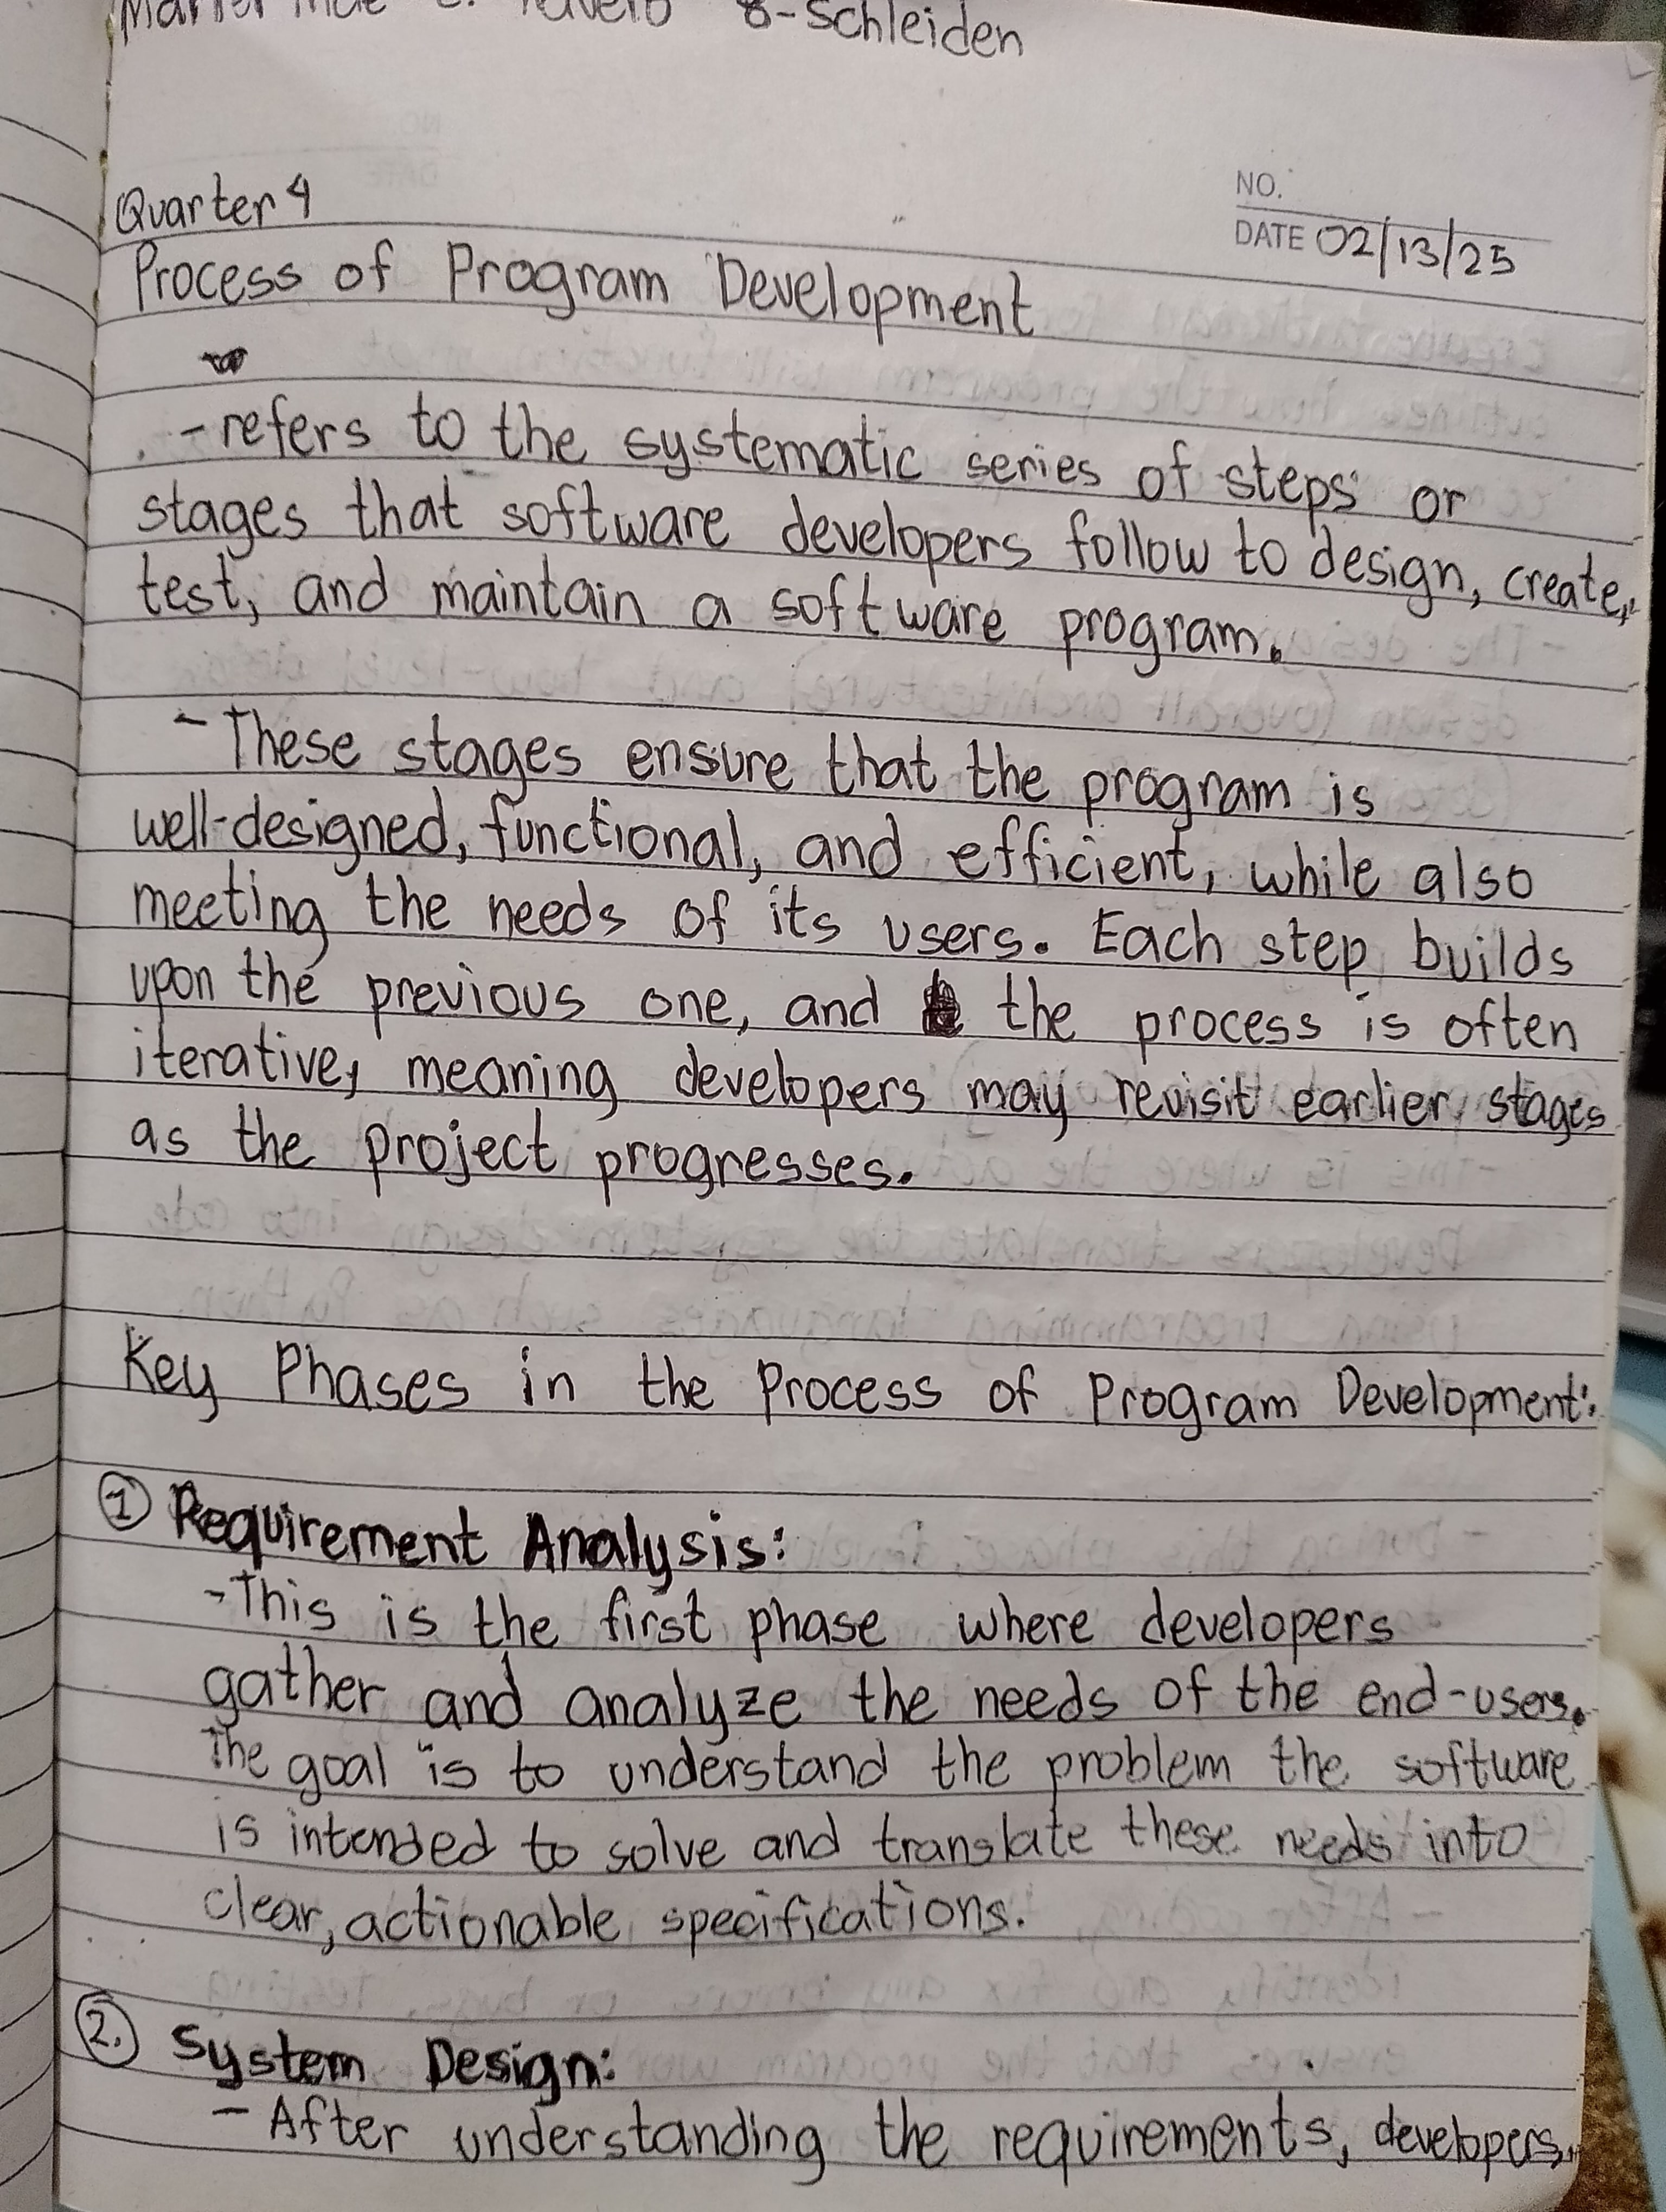 8-Schleiden
NO.
Quarter 4
DATE 02/13/25
Process of Program Development
- refers to the systematic series of steps or
stages that software developers follow to design, create,
test, and maintain a software program.
- These stages ensure that the program is
well-designed, functional, and efficient, while also
meeting the needs of its users. Each step builds
upon the previous one, and the process is often
iterative, meaning developers may revisit earlier stages
as the project progresses.
Key Phases in the Process of Program Development:
① Requirement Analysis:
- This is the first phase where developers
gather and analyze the needs of the end-users.
The goal is to understand the problem the software
is intended to solve and translate these needs into
clear, actionable specifications.
2. System Design:
- After understanding the requirements, developers